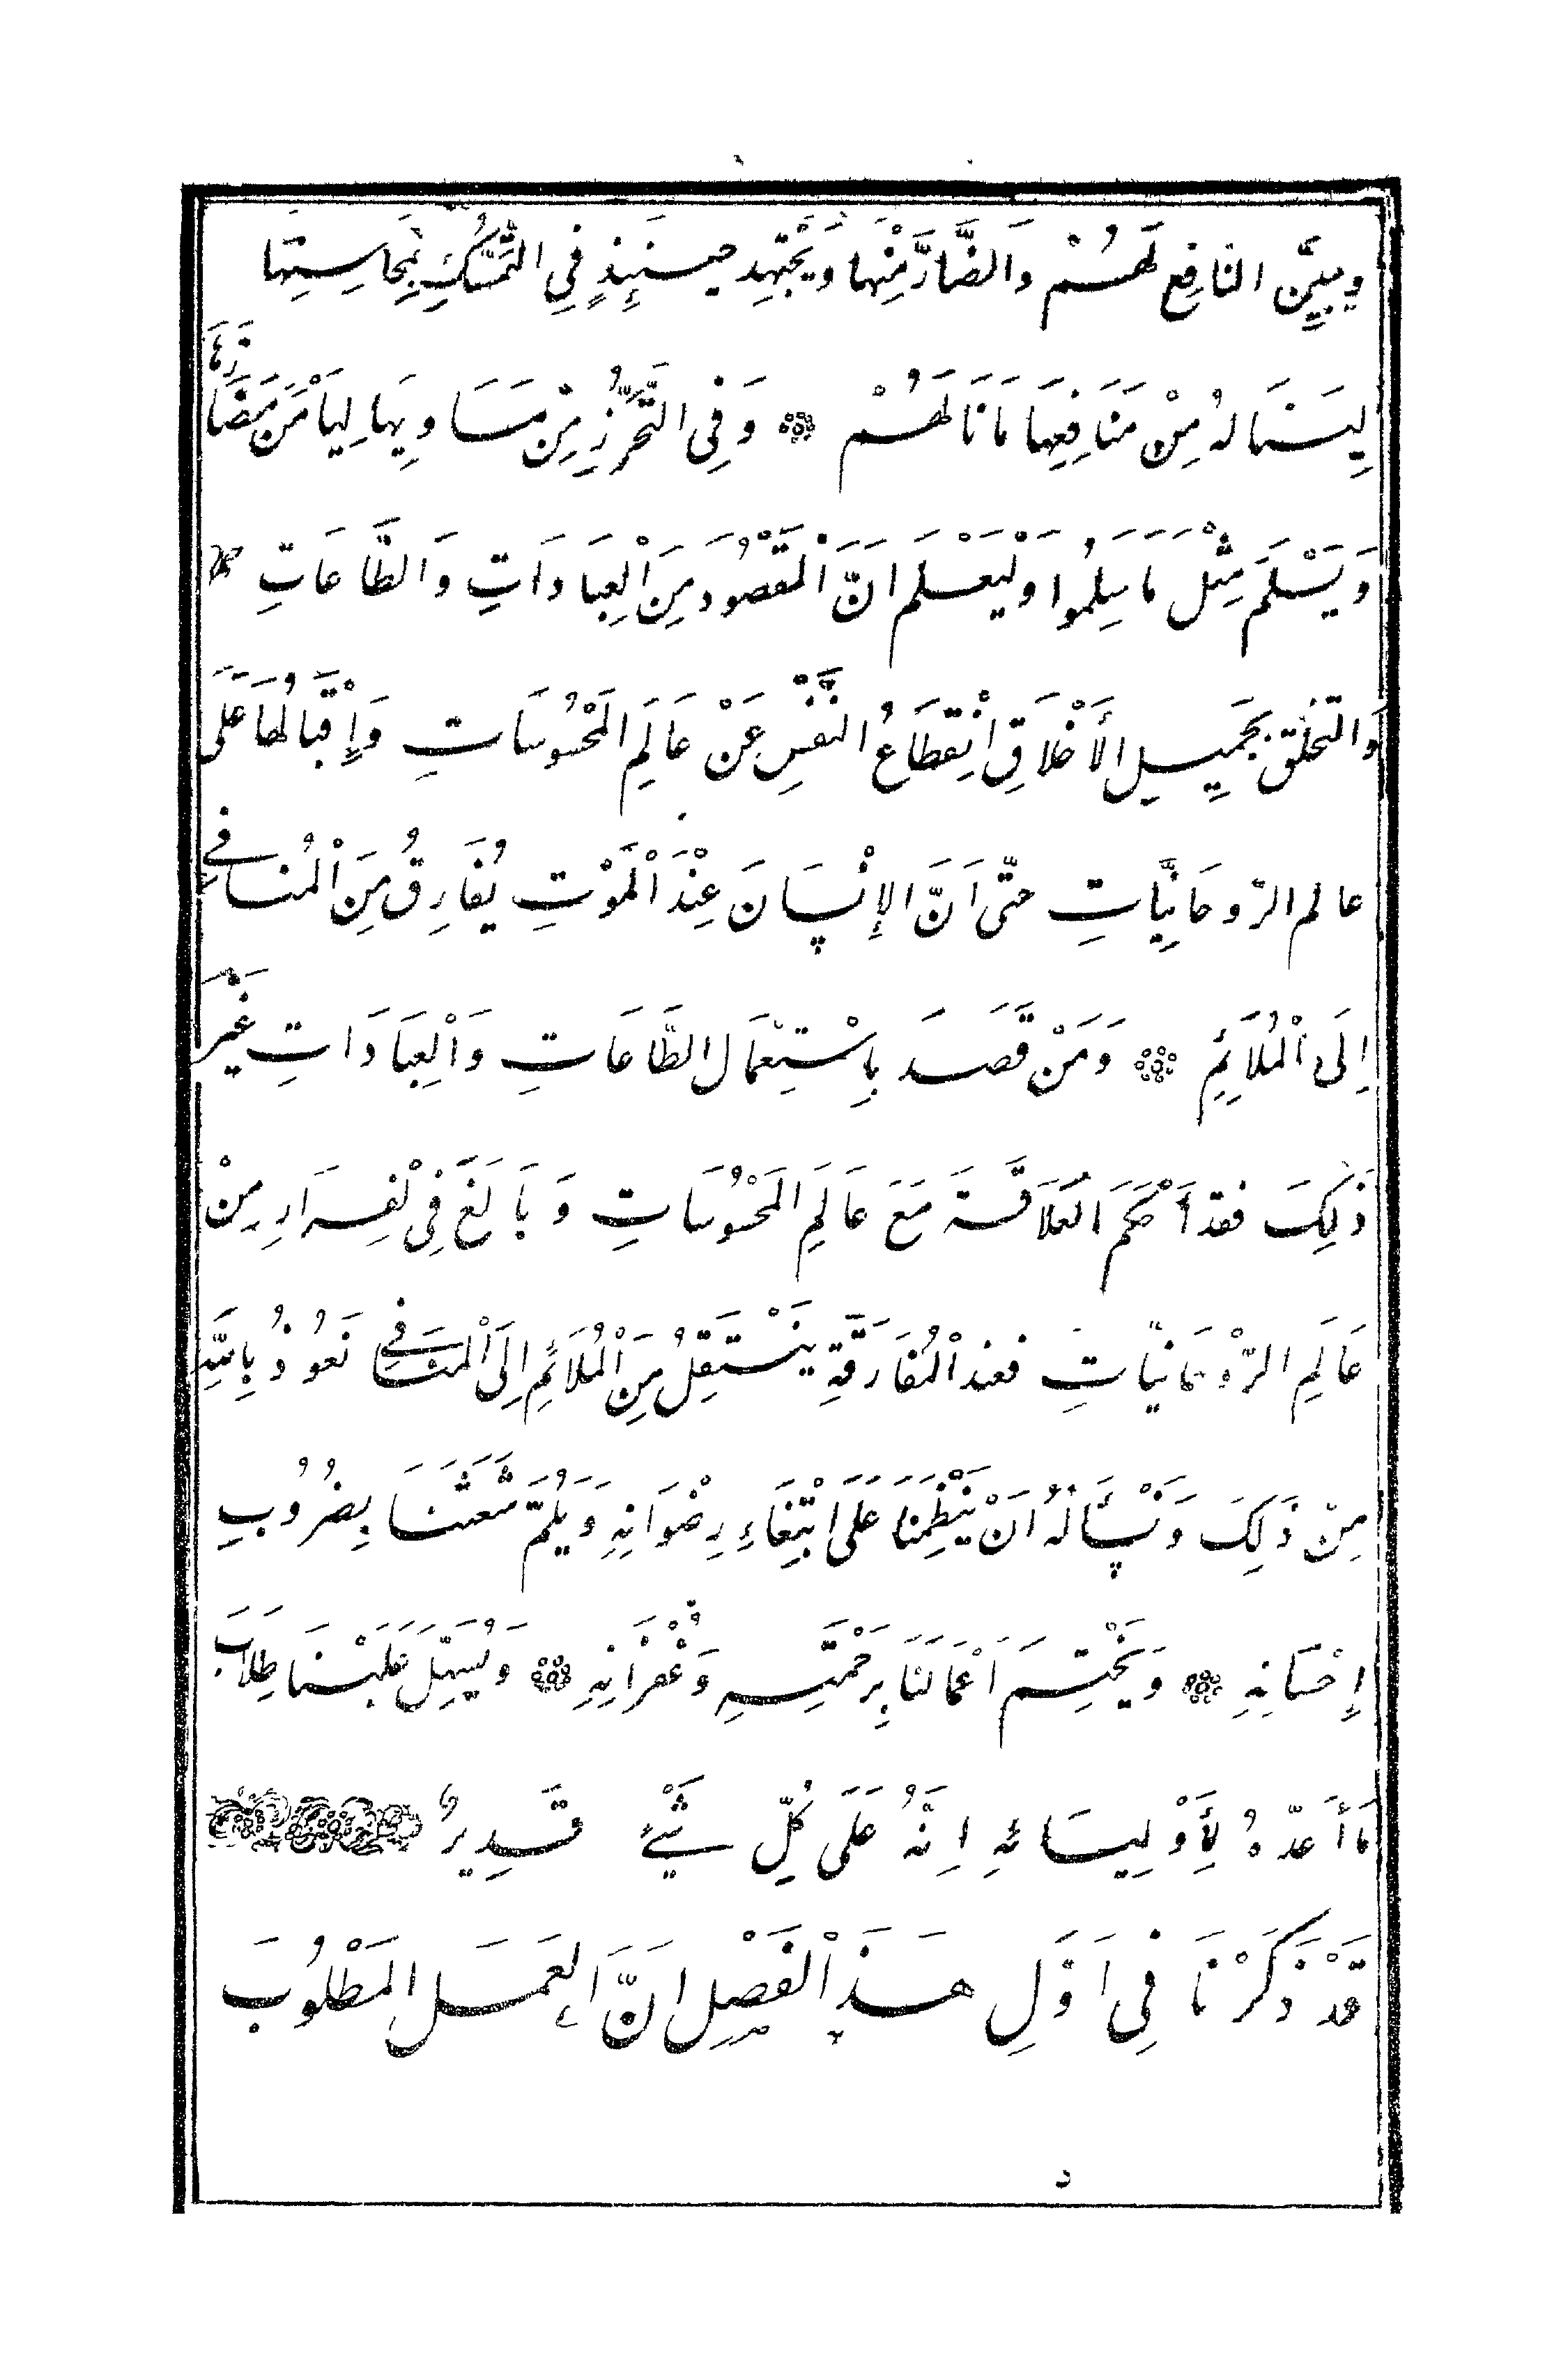 وبيِّن النافِع لَهُمْ وَالضَّارَّ مِنْهَا وَيَجْتَهِد حِينَئِذٍ فِي التَّمَسُّكِ بِمَحَاسِنِهَا
لِيَنَالهُ مِنْ مَنَافِعِهَا مَا نَالَهُمْ ۞ وَفِي التَّحَرُّزِ مِنْ مَسَاوِيهَا لِيَأْمَنَ مَضَارَّهَا
وَيَسْلَمَ مِثْلَ مَا سَلِمُوا وَلْيَعْلَم اَنَّ الْمَقْصُودَ مِنَ الْعِبَادَاتِ وَالطَّاعَاتِ
وَالتخلّق بجَمِيلِ الأَخْلَاقِ انْقِطَاعُ النَّفْسِ عَنْ عَالَمِ الْمَحْسُوسَاتِ وَإِقْبَالُهَا عَلَى
عالم الرّوحَانِيَّاتِ حتّى اَنَّ الإِنْسَانَ عِنْدَ الْمَوْتِ يُفَارِقُ مِنَ الْمُنَافِي
اِلَى الْمُلَائِمِ ۞ وَمَنْ قَصَدَ بِاسْتِعْمَال الطَّاعَاتِ وَالْعِبَادَاتِ غَيْرَ
ذَلِكَ فقد أَحْكَمَ الْعَلَاقَةَ مَعَ عَالَمِ الْمَحْسُوسَاتِ وَبَالَغَ فِي الْفِرَارِ مِنْ
عَالَمِ الرّوْحَانيّاتِ فعند الْمُفَارَقَةِ يَنْتَقِلُ مِنَ الْمُلَائِمِ اِلَى الْمُنَافِي نَعُوذُ بِاللّهِ
مِنْ ذَلِكَ وَنَسْأَلُهُ اَنْ يَنْظِمَنَا عَلَى ابْتِغَاءِ رِضْوَانِهِ وَيَلُمَّ شَعَثَنَا بِضُرُوبِ
إِحْسَانِهِ ۞ وَيَخْتِمَ اَعْمَالَنَا بِرَحْمَتِهِ وَغُفْرَانِهِ ۞ وَيُسَهِّلَ عَلَيْنَا طِلَابَ
مَا أَعَدّهُ لِأَوْلِيَائهِ اِنَّهُ عَلَى كُلِّ شَيْءٍ قَدِيرٌ
قَدْ ذَكَرْنَا فِي اَوَّلِ هَذَا الْفَصْلِ اَنَّ الْعَمَلَ الْمَطْلُوبَ